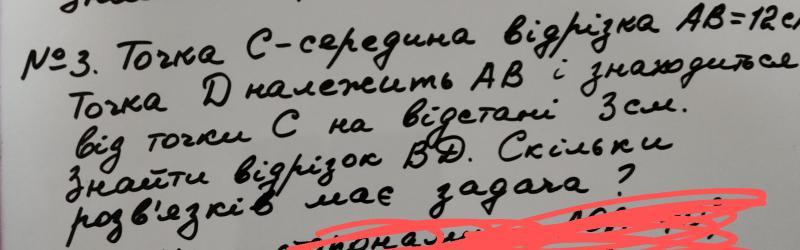 №3. Точка С-середина відрізка АВ=12см
Точка D належить АВ і знаходиться
від точки С на відстані 3 см.
Знайти відрізок ВD. Скільки
розв'язків має задача?